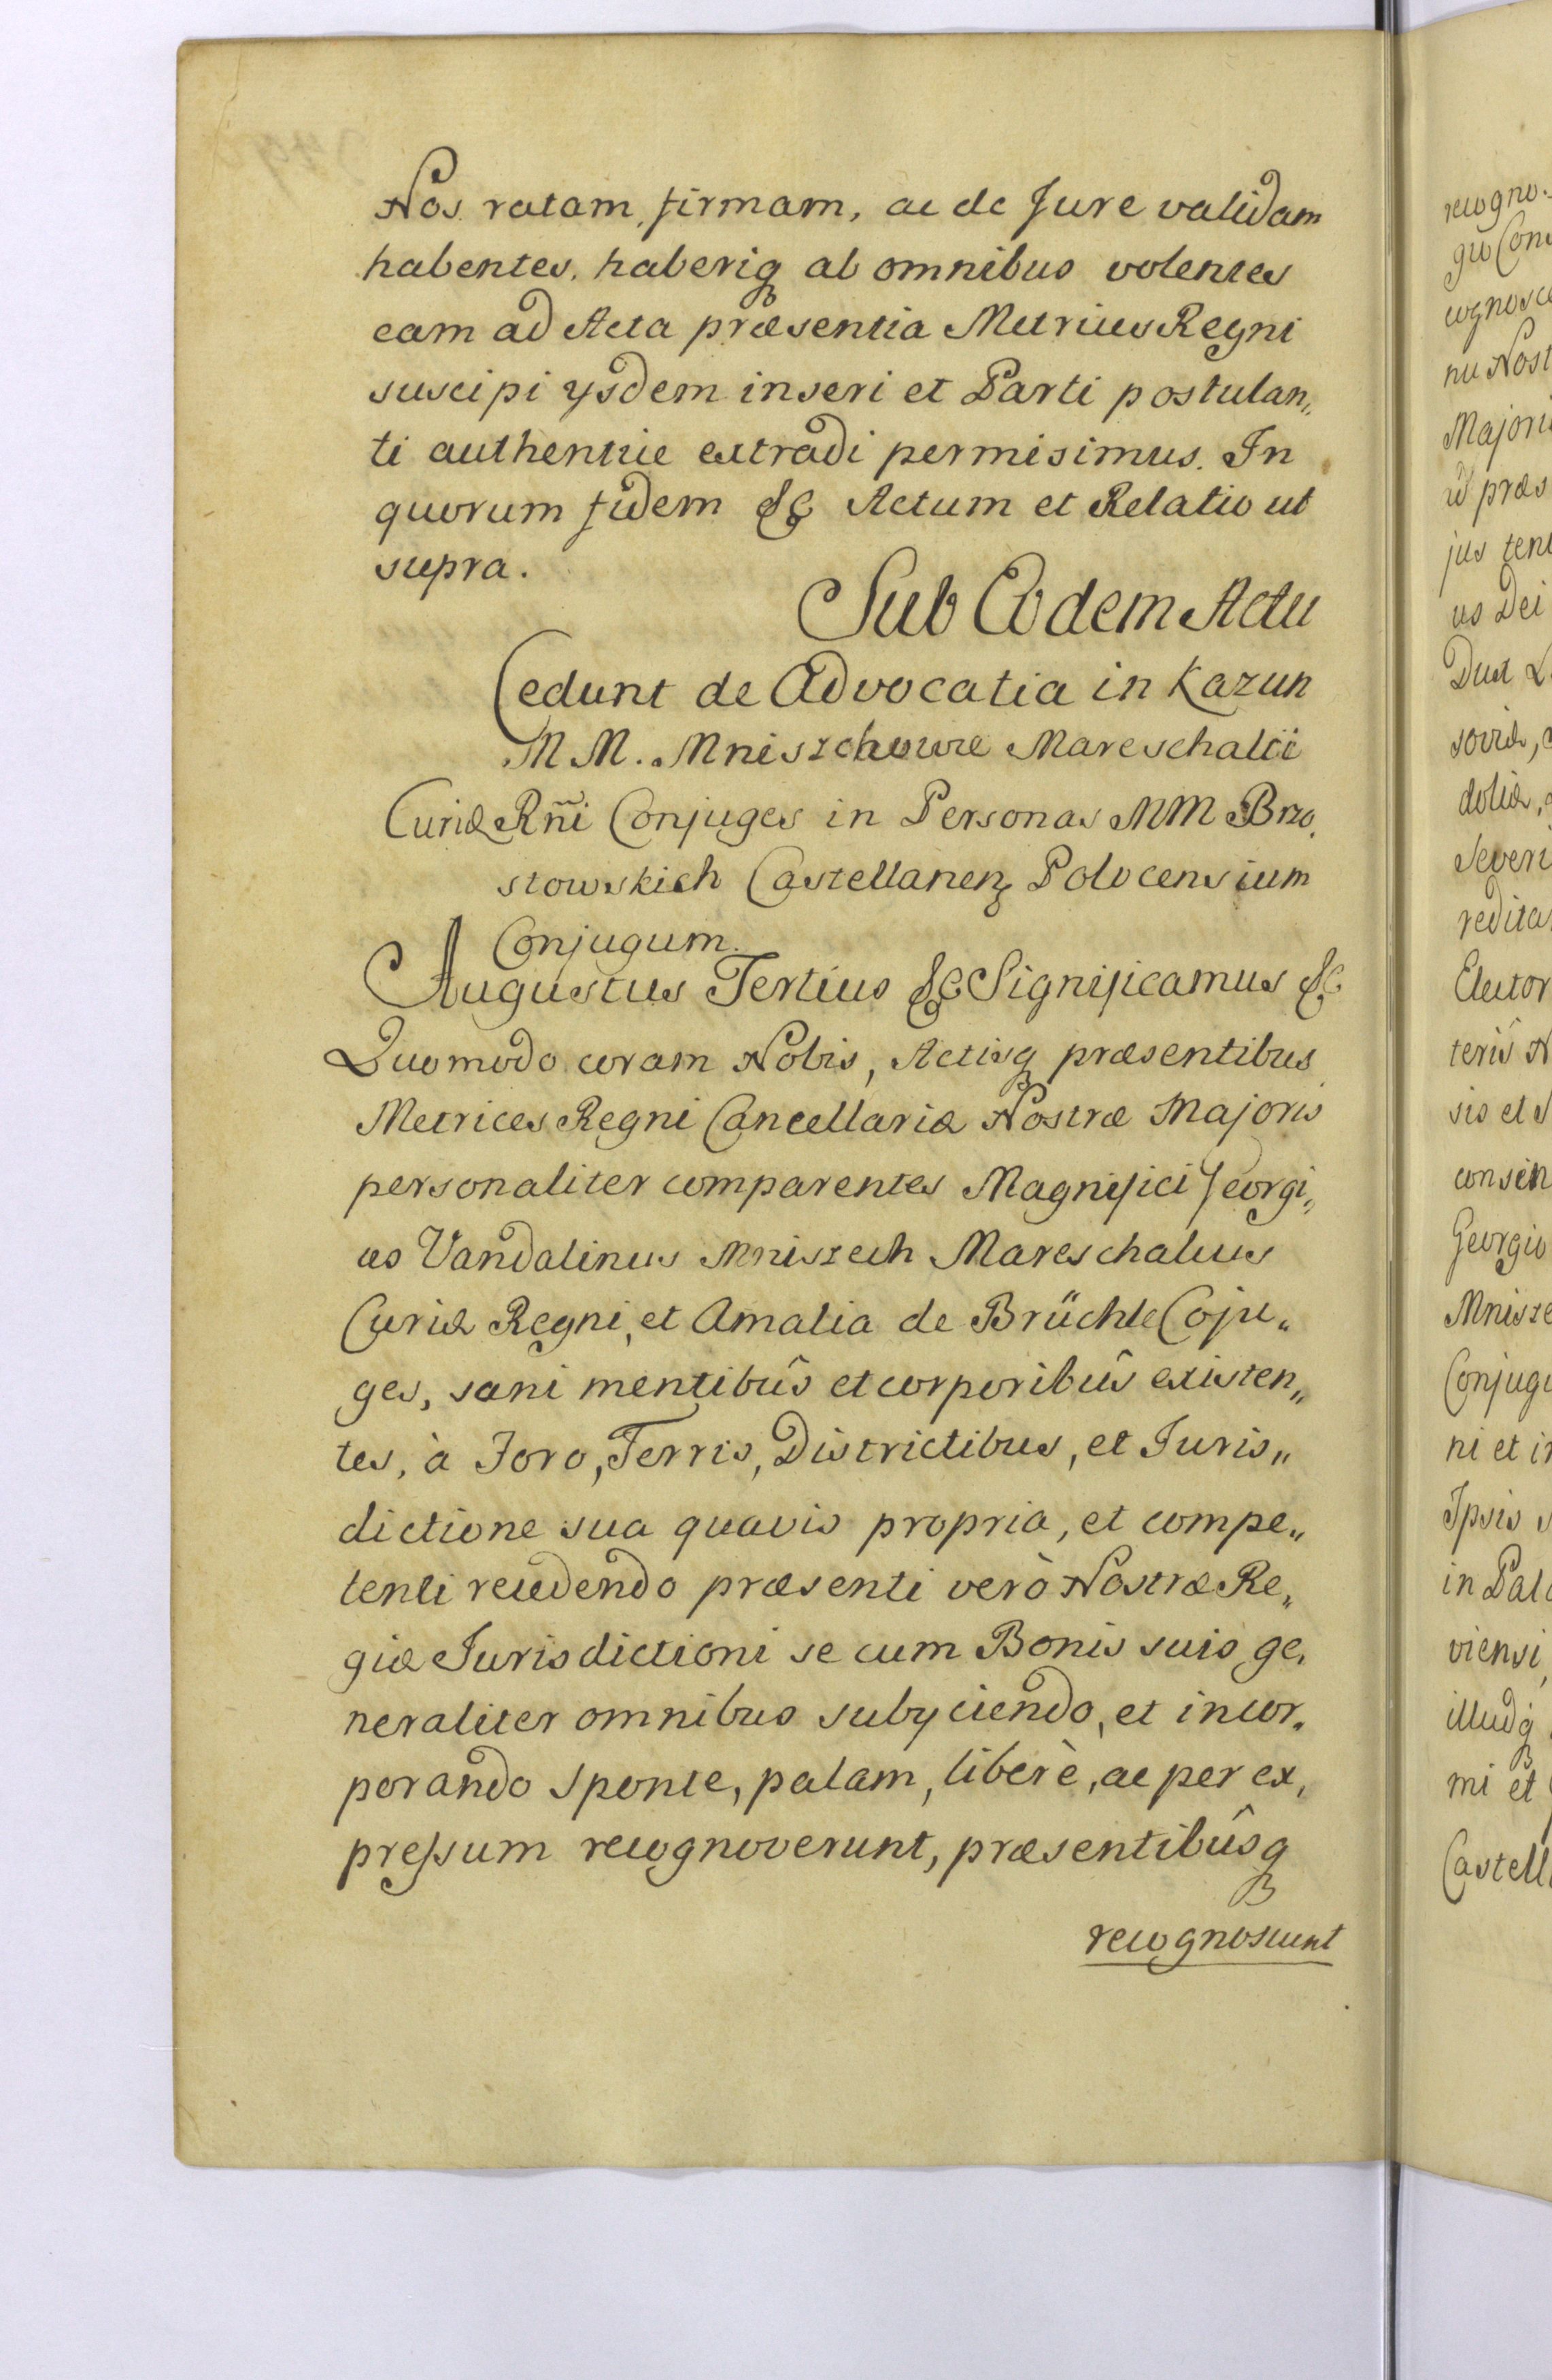 Nos ratam, firmam, ac de Jure validam
habentes, haberiq ab omnibus volentes
eam ad Acta præsentia Metrices Regni
suscipi ysdem inseri et Parti postulan„
ti authentice extradi permisimus. In
quorum fidem &c Actum et Relatio ut
supra.
Sub Eodem Actu
Cedunt de Advocatia in Kazun
MM. Mniszchowie Mareschalii
Curiæ Rñi Conjuges in Personas MM Brzo,
stowskich Castellanen Polocensium
Conjugum.
Augustus Tertius &c Significamus &c
Quomodo coram Nobis, Actisq præsentibus
Metrices Regni Cancellariæ Nostræ Majoris
personaliter comparentes Magnifici Georgi„
us Vandalinus Mniszech Mareschalcus
Curiæ Regni, et Amalia de Brüchle Coju„
ges, sani mentibûs et corporibûs existen„
tes, à Foro, Terris, Districtibus, et Juris„
dictione sua quavis propria, et compe„
tenti recedendo præsenti verò Nostræ Re„
giæ Jurisdictioni se cum Bonis suis ge,
neraliter omnibus subyciendo, et incor,
porando sponte, palam, liberè, ac per ex,
pressum recognoverunt, præsentibûsq
recognoscunt
recogno„
gio Con
cognosce
nu Nost
Majori
id præs
jus ten
us Dei
Dux L
soviæ,
doliæ,
Severi
redita
Elector
terîs N
sis et
consen
Georgio
Mnisze
Conjugi
ni et in
Ipsis
in Pala
viensi,
illudq
mi et
Castell